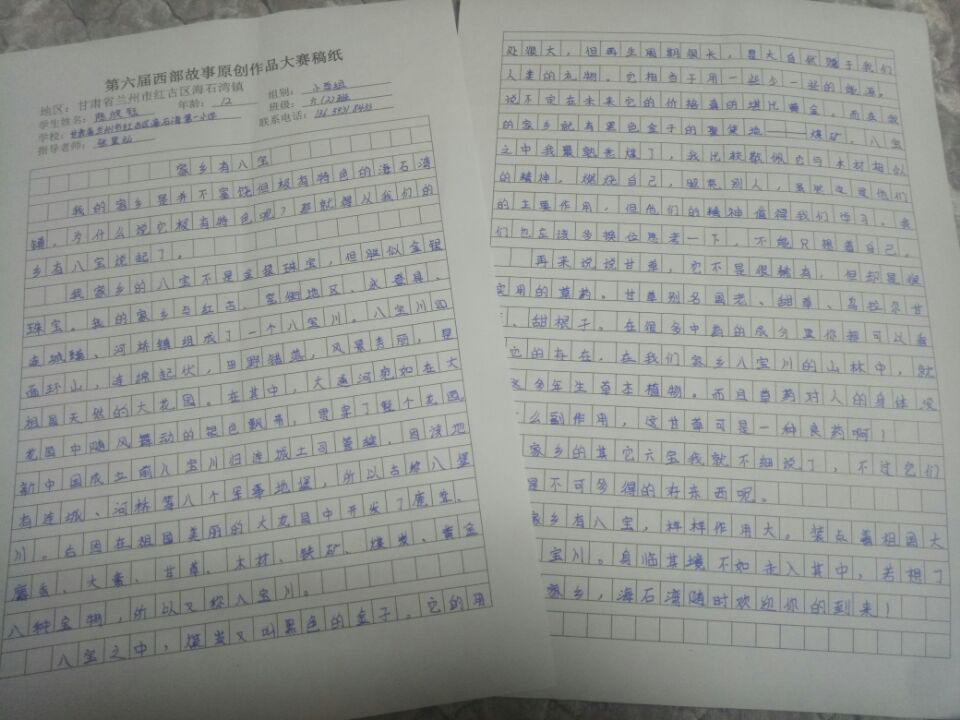 第六届西部故事原创作品大赛稿纸
地区：甘肃省兰州市红古区海石湾镇
组别：小学组
学生姓名：
年龄：12
班级：六(2)班
学校：甘肃省兰州市红古区海石湾第一小学
联系电话：
指导老师：
家乡有八宝
我的家乡是并不富饶但极有特色的海石湾
镇，为什么说它极有特色呢？那就得从我们的
乡有八宝说起了。
我家乡的八宝不是金银珠宝，但胜似金银
珠宝。我的家乡与红古、窑街地区、永登县、
连城镇、河桥镇组成了一个八宝川。八宝川四
面环山，连绵起伏，田野错落，风景秀丽，是
祖国天然的大花园。在其中，大通河宛如在大
花园中随风舞动的银色飘带，贯穿了整个花园。
新中国成立前八宝川归连城土司管辖，因该地
有连城、河桥等八个军事地堡，所以古称八堡
川。后因在祖国美丽的大花园中开发了鹿茸、
麝香、大黄、甘草、木材、铁矿、煤炭、黄金
八种宝物，所以又称八宝川。
八宝之中，煤炭又叫黑色的金子。它的用
处很大，但再生周期很长，是大自然赠予我们
人类的礼物。它相当于用一些少一些的能源，
说不定在未来它的价格真的堪比黄金。而在我
的家乡就有黑色金子的聚集地——煤矿。八宝
之中我最熟悉煤了，我比较敬佩它与木材相似
的精神，燃烧自己，照亮别人，虽然这是他们
的主要作用，但他们的精神值得我们学习。我
们也应该多换位思考一下，不能只想着自己。
再来说说甘草，它不是很稀有，但却是很
实用的草药。甘草别名国老、甜草、乌拉尔甘
、甜根子。在很多中药的成分里你都可以看
它的存在，在我们家乡八宝川的山林中，就
这多年生草本植物。而且草药对人的身体没
么副作用，这甘草可是一种良药啊！
家乡的其它六宝我就不细说了，不过它们
是不可多得的好东西呢。
家乡有八宝，样样作用大。装点着祖国大
宝川。身临其境不如走入其中，若想了
家乡，海石湾随时欢迎你的到来！